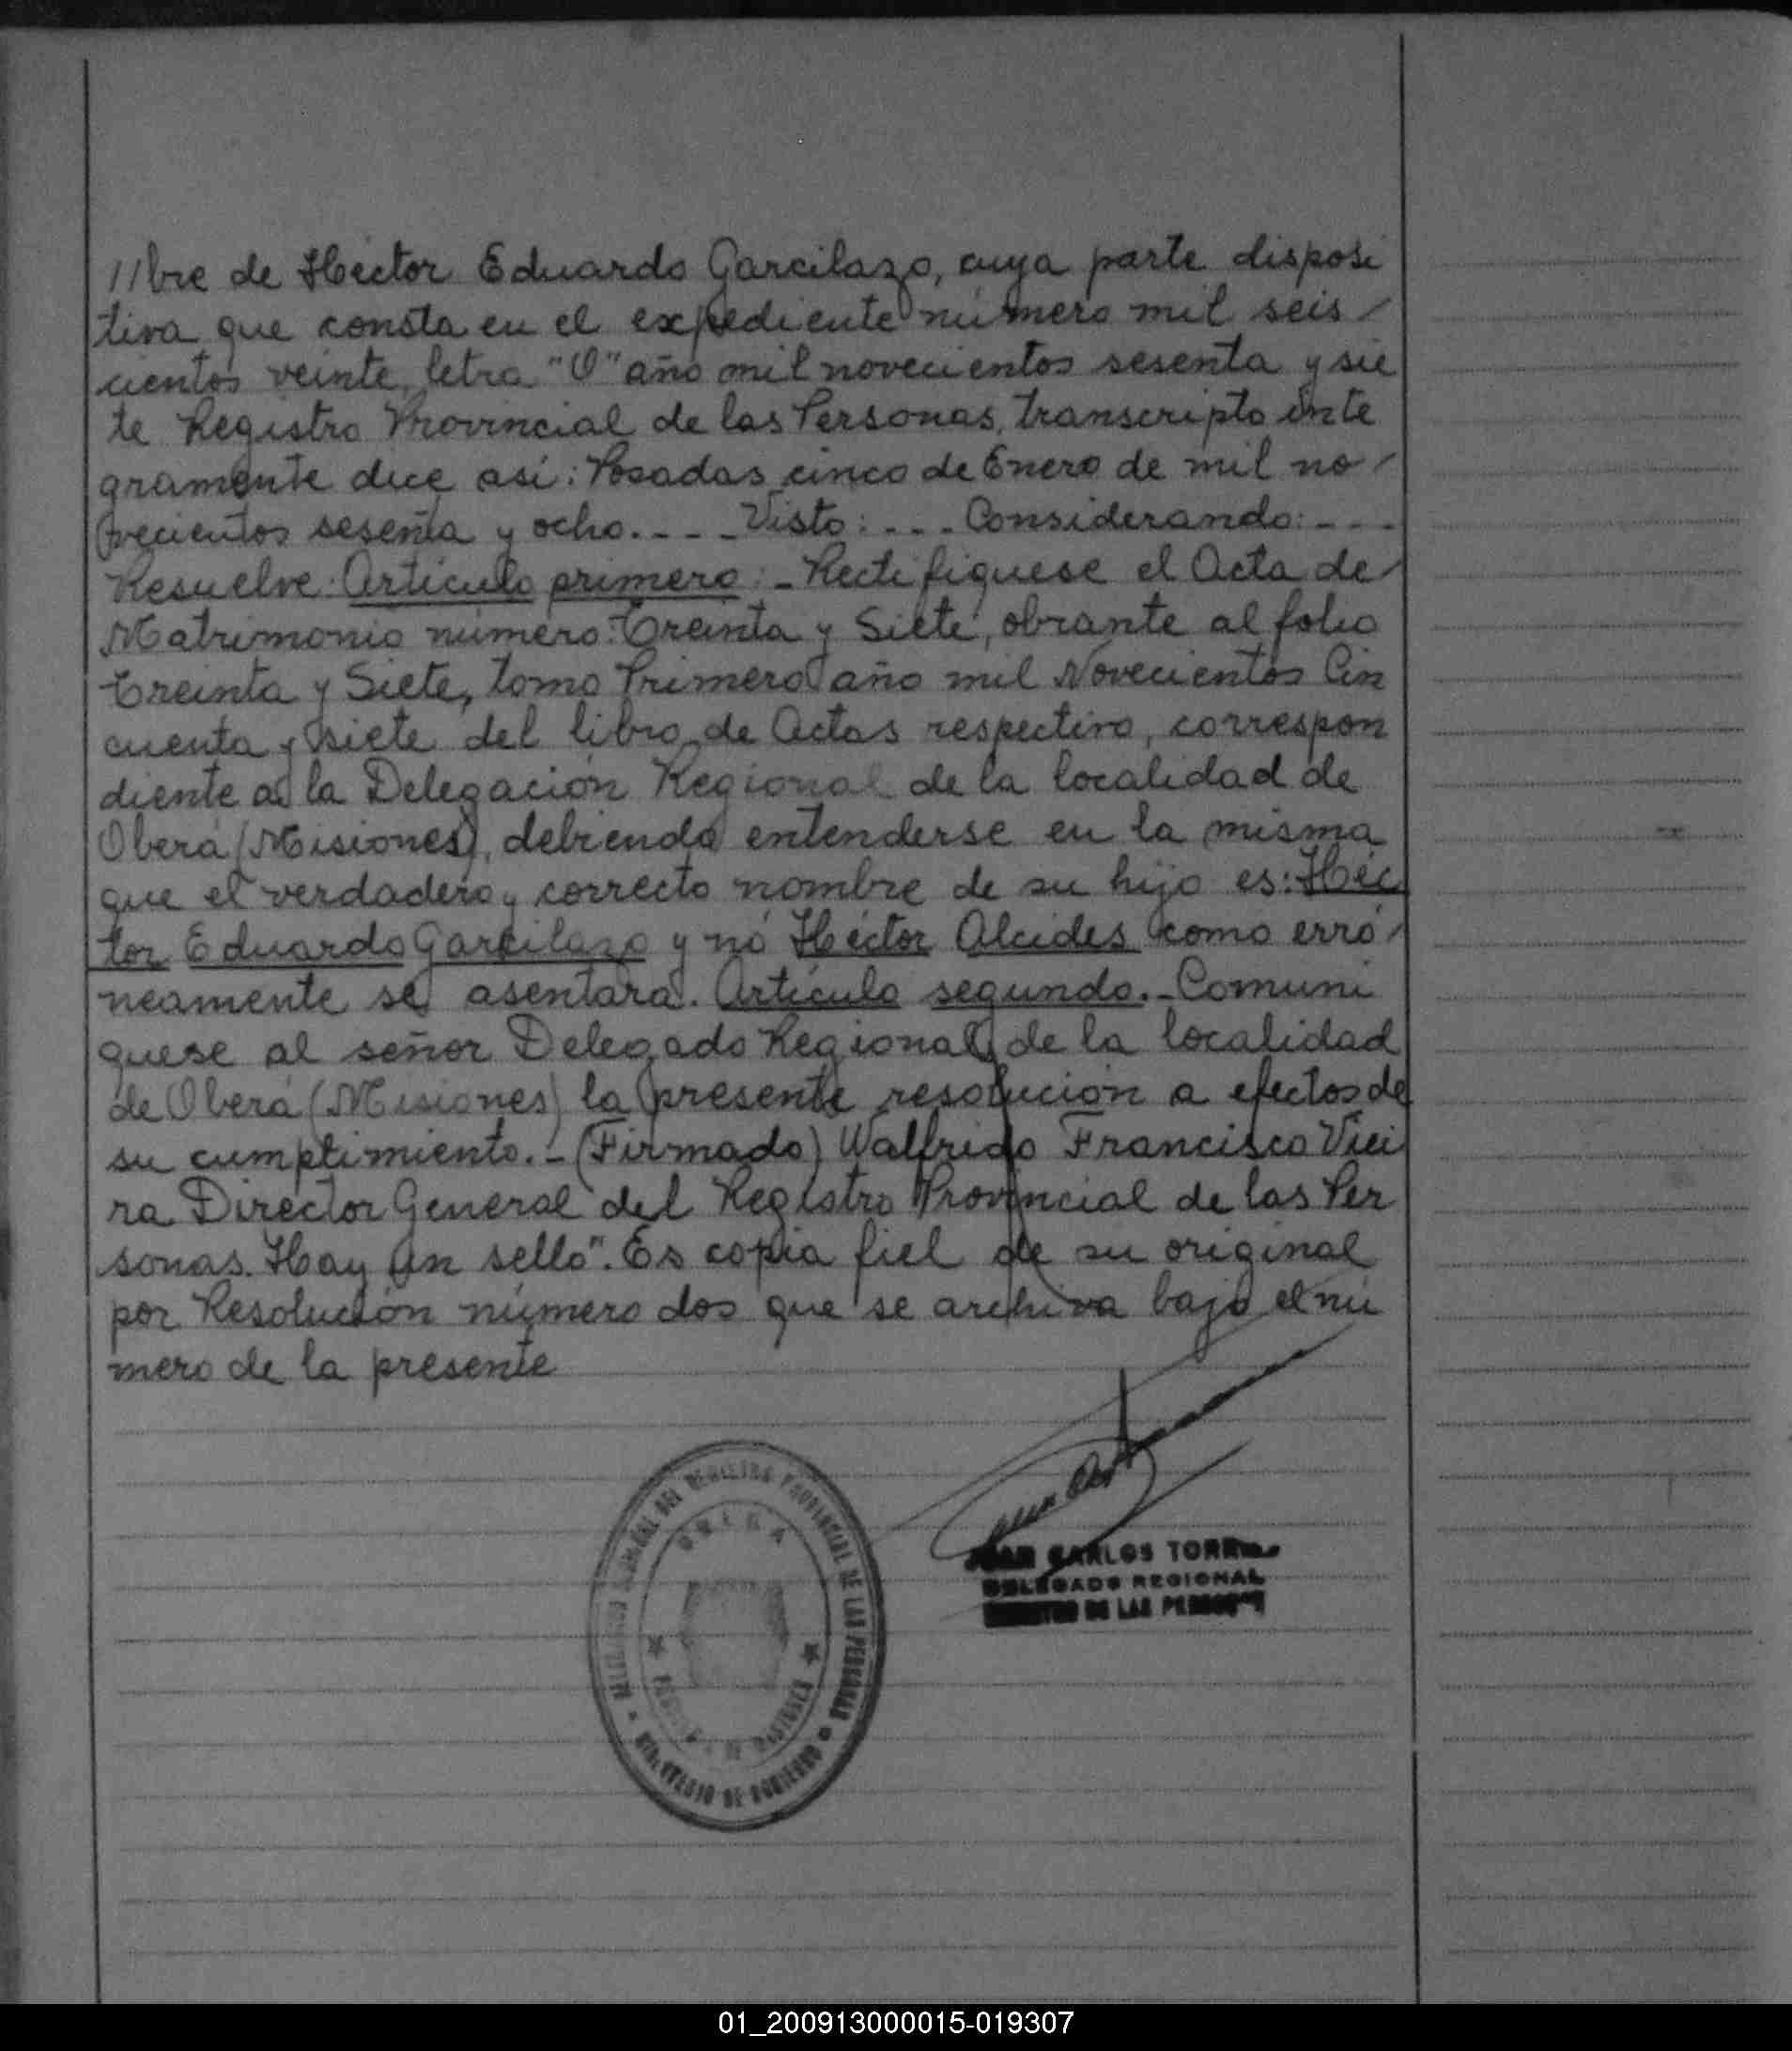 //bre de Héctor Eduardo Garcilazo, cuya parte disposi
tiva que consta en el expediente número mil seis /
cientos veinte, letra "O" año mil novecientos sesenta y sie
te Registro Provincial de las Personas, transcripto ínte
gramente dice así: Posadas cinco de Enero de mil no /
vecientos sesenta y ocho. - - - - Visto: - - - Considerando: - - -
Resuelve: Artículo primero: - Rectifíquese el Acta de /
Matrimonio número: Treinta y Siete, obrante al folio
Treinta y Siete, tomo Primero año mil Novecientos Cin
cuenta y siete del libro de Actas respectivo, correspon
diente a la Delegación Regional de la localidad de
Oberá (Misiones), debiendo entenderse en la misma
que el verdadero y correcto nombre de su hijo es: Héc
tor Eduardo Garcilazo y nó Héctor Alcides como erró /
neamente se asentara. Artículo segundo. - Comuní
quese al señor Delegado Regional de la localidad
de Oberá (Misiones) la presente resolución a efectos de
su cumplimiento. - (Firmado) Walfrido Francisco Viei
ra Director General del Registro Provincial de las Per
sonas. Hay un sello". Es copia fiel de su original
por Resolución número dos que se archiva bajo el nú
mero de la presente
REGISTRO PROVINCIAL DE LAS PERSONAS
MINISTERIO DE GOBIERNO
JUAN CARLOS TORRES
DELEGADO REGIONAL
REGISTRO DE LAS PERSONAS
01_200913000015-019307